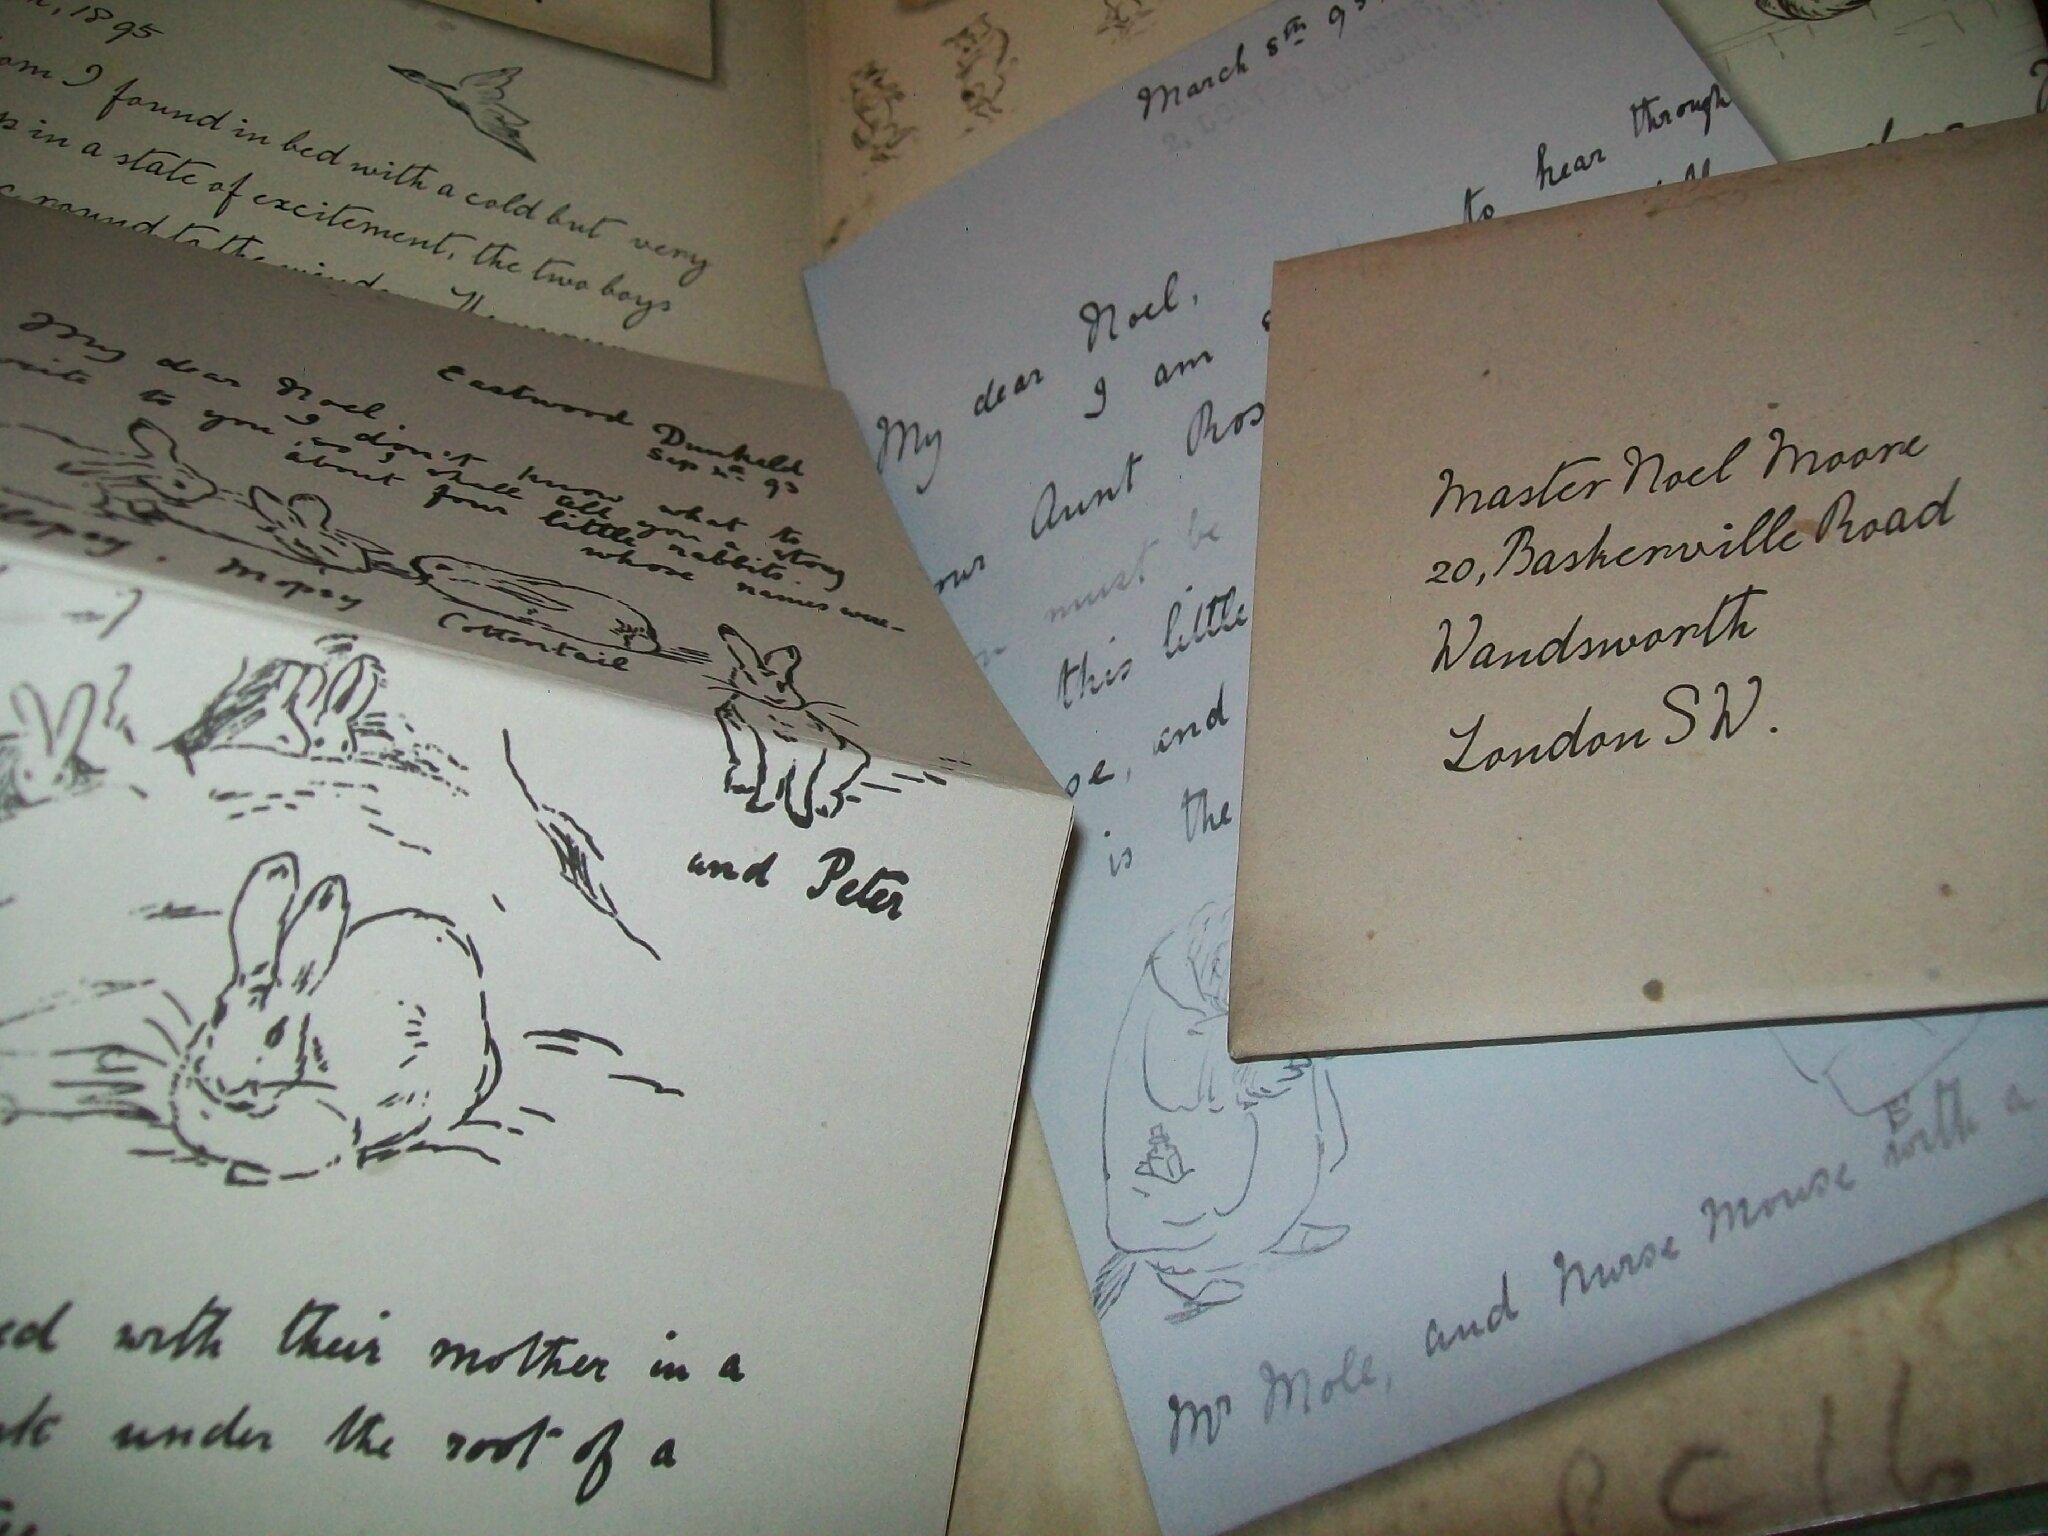 1895
I found in bed with a cold but very
in a state of excitement, the two boys
round to the
Eastwood Dunkeld
Sep 4th 93
My dear Noel,
I don't know what to
write to you, so I shall tell you a story
about four little rabbits.
whose names were-
Mopsy
Cottontail
and Peter
with their mother in a
under the root of a
March 8th 95
My dear Noel,
I am
to hear through
Aunt
must be
this little
and
is the
Mr Mole, and Nurse Mouse with a
Master Noel Moore
20, Baskerville Road
Wandsworth
London S W.